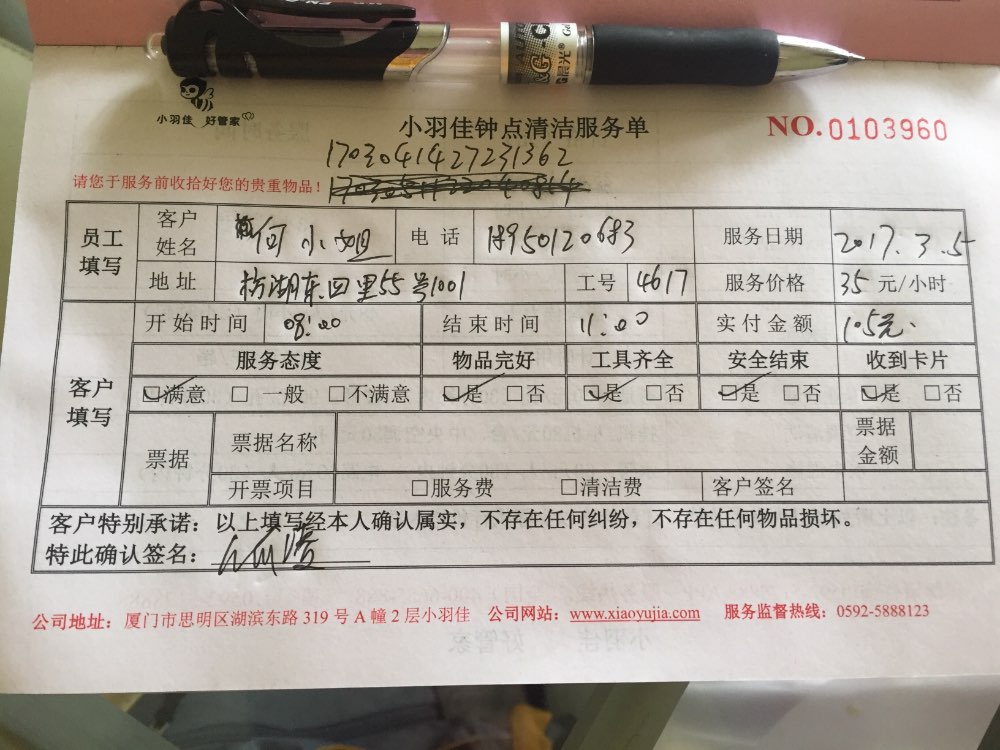 AUTO
M&G-G
晨光® Ge
小羽佳 好管家
小羽佳钟点清洁服务单
NO.0103960
1703041427231362
请您于服务前收拾好您的贵重物品！
员工填写 客户姓名 何小姐 电话 18950120683 服务日期 2017.3.5
地址 枋湖东四里55号1001 工号 4617 服务价格 35 元/小时
客户填写 开始时间 08:00 结束时间 11:00 实付金额 105元.
服务态度 物品完好 工具齐全 安全结束 收到卡片
☑满意 □ 一般 □不满意 ☑是 □否 ☑是 □否 ☑是 □否 ☑是 □否
票据 票据名称 票据金额
开票项目 □服务费 □清洁费 客户签名
客户特别承诺：以上填写经本人确认属实，不存在任何纠纷，不存在任何物品损坏。
特此确认签名：
公司地址：厦门市思明区湖滨东路 319 号 A 幢 2 层小羽佳 公司网站：www.xiaoyujia.com 服务监督热线：0592-5888123